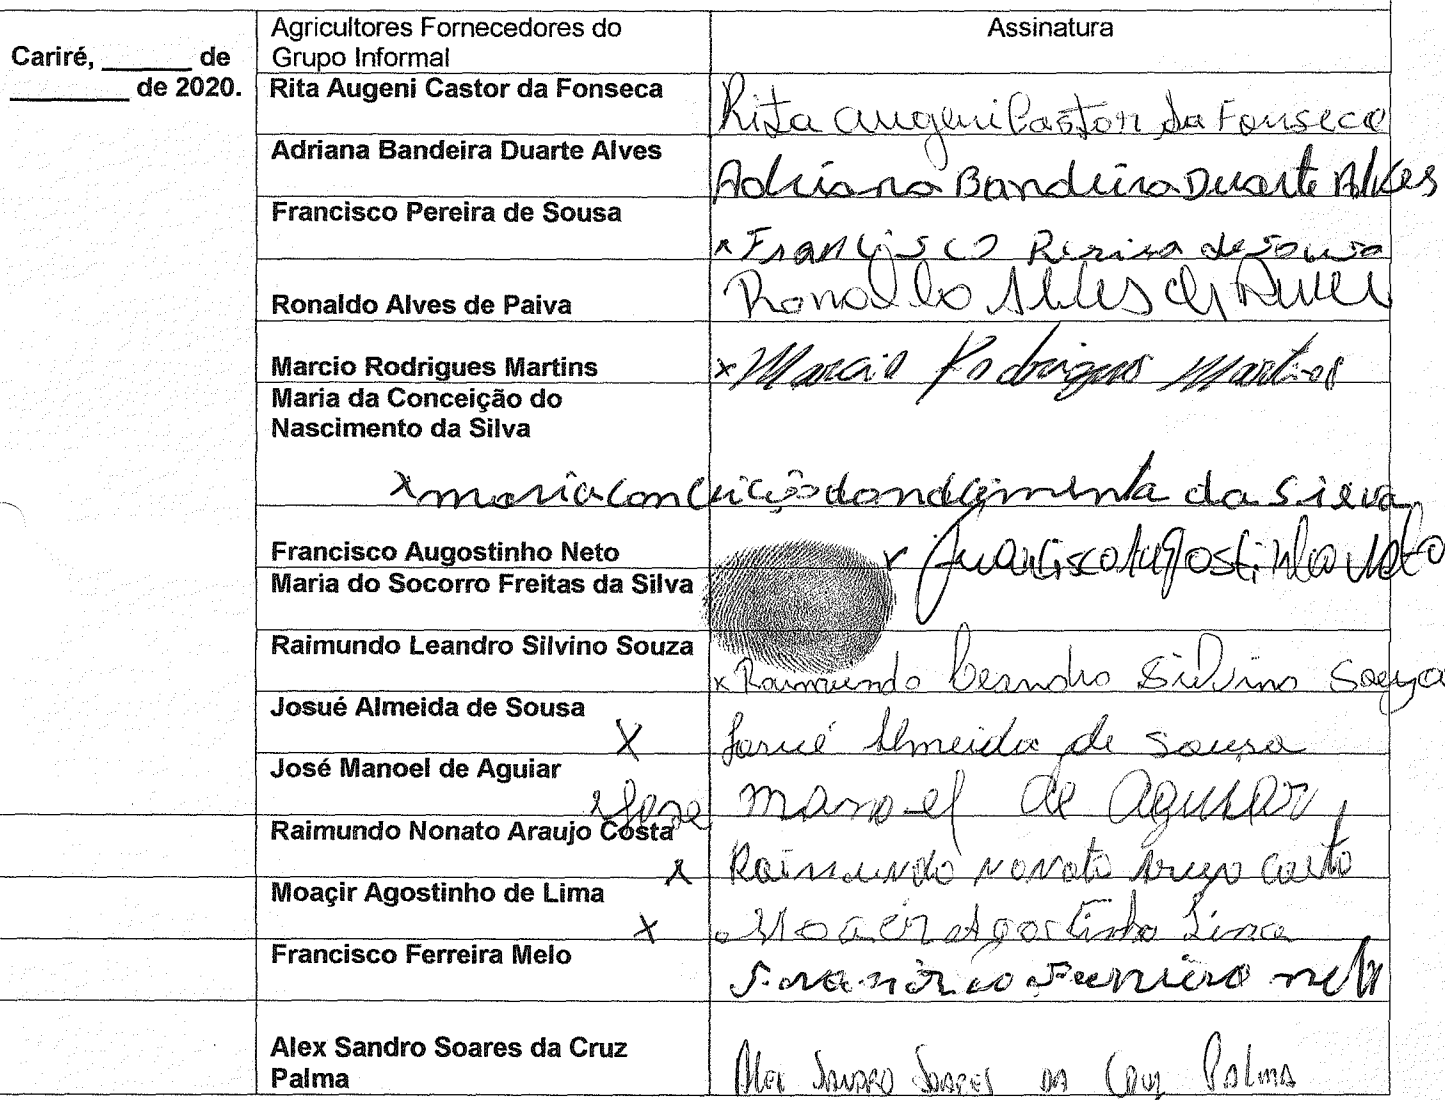 Agricultores Fornecedores do
Grupo Informal
Assinatura
Cariré, ______ de
________ de 2020.
Rita Augeni Castor da Fonseca
Rita Augeni Castor da Fonseca
Adriana Bandeira Duarte Alves
Adriana Bandeira Duarte Alves
Francisco Pereira de Sousa
x Francisco Pereira de Sousa
Ronaldo Alves de Paiva
Ronaldo Alves
Marcio Rodrigues Martins
x Marcio Rodrigues Martins
Maria da Conceição do
Nascimento da Silva
x maria Conceição da Silva
Francisco Augostinho Neto
x Francisco Agostinho Neto
Maria do Socorro Freitas da Silva
Raimundo Leandro Silvino Souza
x Raimundo Silvino Souza
Josué Almeida de Sousa
X Josué Almeida de Sousa
José Manoel de Aguiar
x Jose manoel de Aguiar
Raimundo Nonato Araujo Costa
x Raimundo Nonato
Moaçir Agostinho de Lima
X Moacir Agostinho Lima
Francisco Ferreira Melo
Alex Sandro Soares da Cruz
Palma
Alex Sandro Soares da Cruz Palma